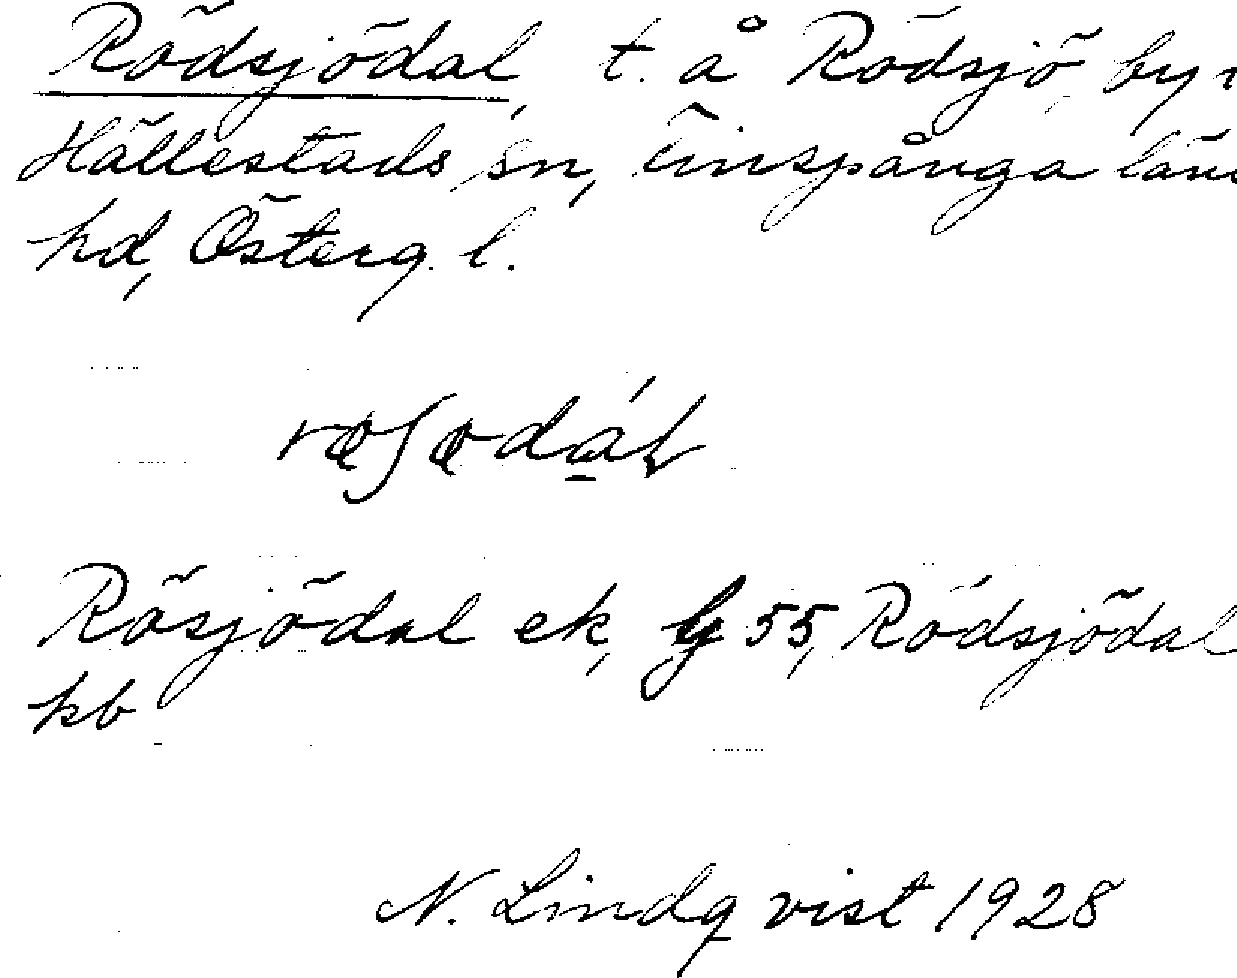 Rödsjödal, t. å Rödsjö by
Hällestads sn, Finspånga län
hd, Österg. l.
Rösjödal ek, 55, Rödsjödal
kb
N. Lindqvist 1928